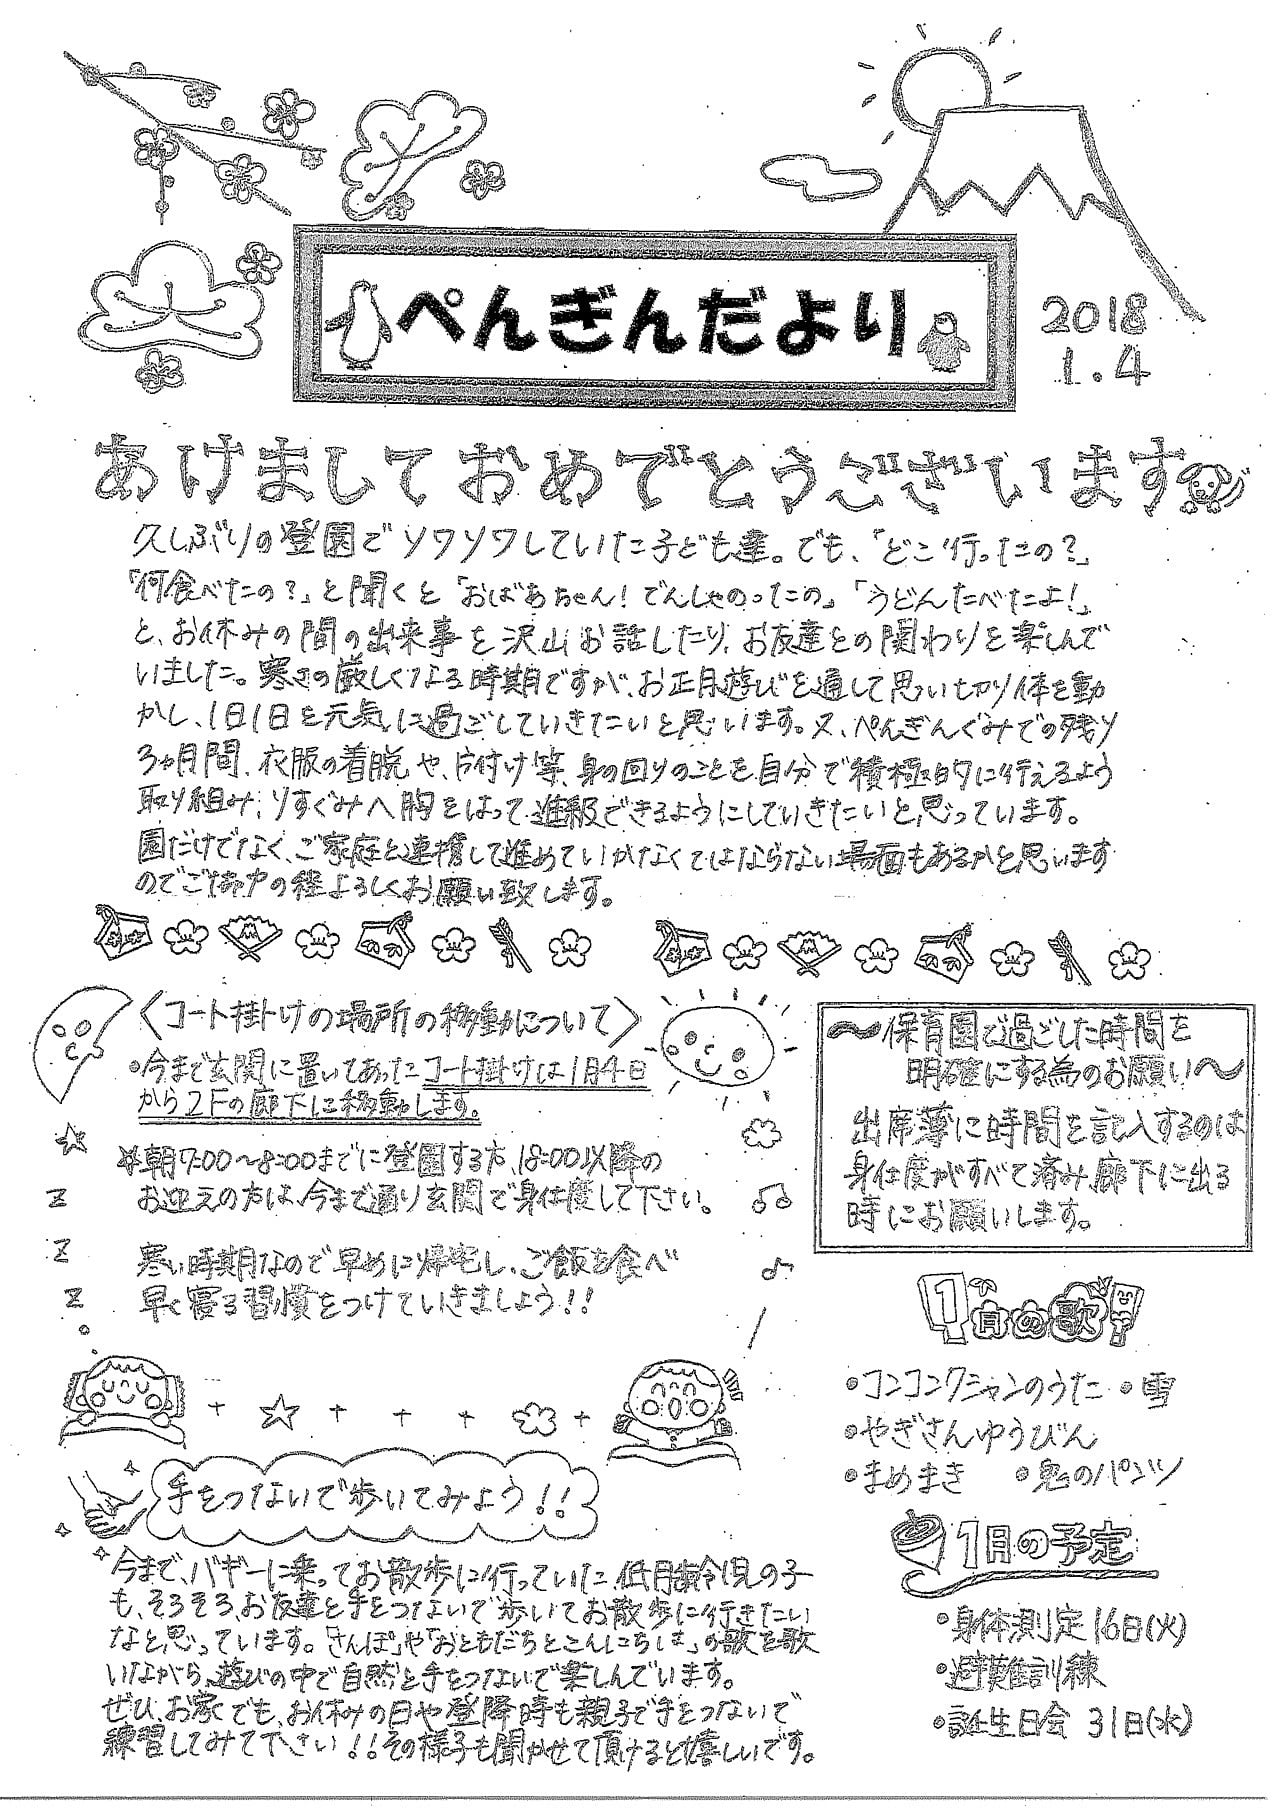 ぺんぎんだより
2018
1.4
あけましておめでとうございます
久しぶりの登園でソワソワしていた子ども達。でも、「どこ行ったの？」
「何食べたの？」と聞くと「おばあちゃん！でんしゃのったの」「うどんたべたよ！」
と、お休みの間の出来事を沢山お話したり、お友達との関わりを楽しんで
いました。寒さの厳しくなる時期ですが、お正月遊びを通して思い切り体を動
かし、1日1日を元気に過ごしていきたいと思います。又、ぺんぎんぐみでの残り
3ヵ月間、衣服の着脱や、片付け等、身の回りのことを自分で積極的に行えるよう
取り組み、りすぐみへ胸をはって進級できるようにしていきたいと思っています。
園だけでなく、ご家庭と連携して進めていかなくてはならない場面もあるかと思います
のでご協力の程よろしくお願い致します。
〈コート掛けの場所の移動について〉
•今まで玄関に置いてあったコート掛けは1月4日
から2Fの廊下に移動します。
※朝7:00～8:00までに登園する方、18:00以降の
お迎えの方は、今まで通り玄関で身仕度して下さい。
寒い時期なので早めに帰宅し、ご飯を食べ
早く寝る習慣をつけていきましょう!!
Z
Z
Z
～保育園で過ごした時間を
明確にする為のお願い～
出席簿に時間を記入するのは
身仕度がすべて済み、廊下に出る
時にお願いします。
1月の歌
•コンコンクシャンのうた •雪
•やぎさんゆうびん
•まめまき •鬼のパンツ
手をつないで歩いてみよう!!
今まで、バギーに乗ってお散歩に行っていた低月齢児の子
も、そろそろ、お友達と手をつないで歩いてお散歩に行きたい
なと思っています。「さんぽ」や「おともだちとこんにちは」の歌を歌
いながら、遊びの中で自然と手をつないで楽しんでいます。
ぜひ、お家でも、お休みの日や登降時も親子で手をつないで
練習してみて下さい!!その様子も聞かせて頂けると嬉しいです。
1月の予定
•身体測定 16日(火)
•避難訓練
•誕生日会 31日(水)